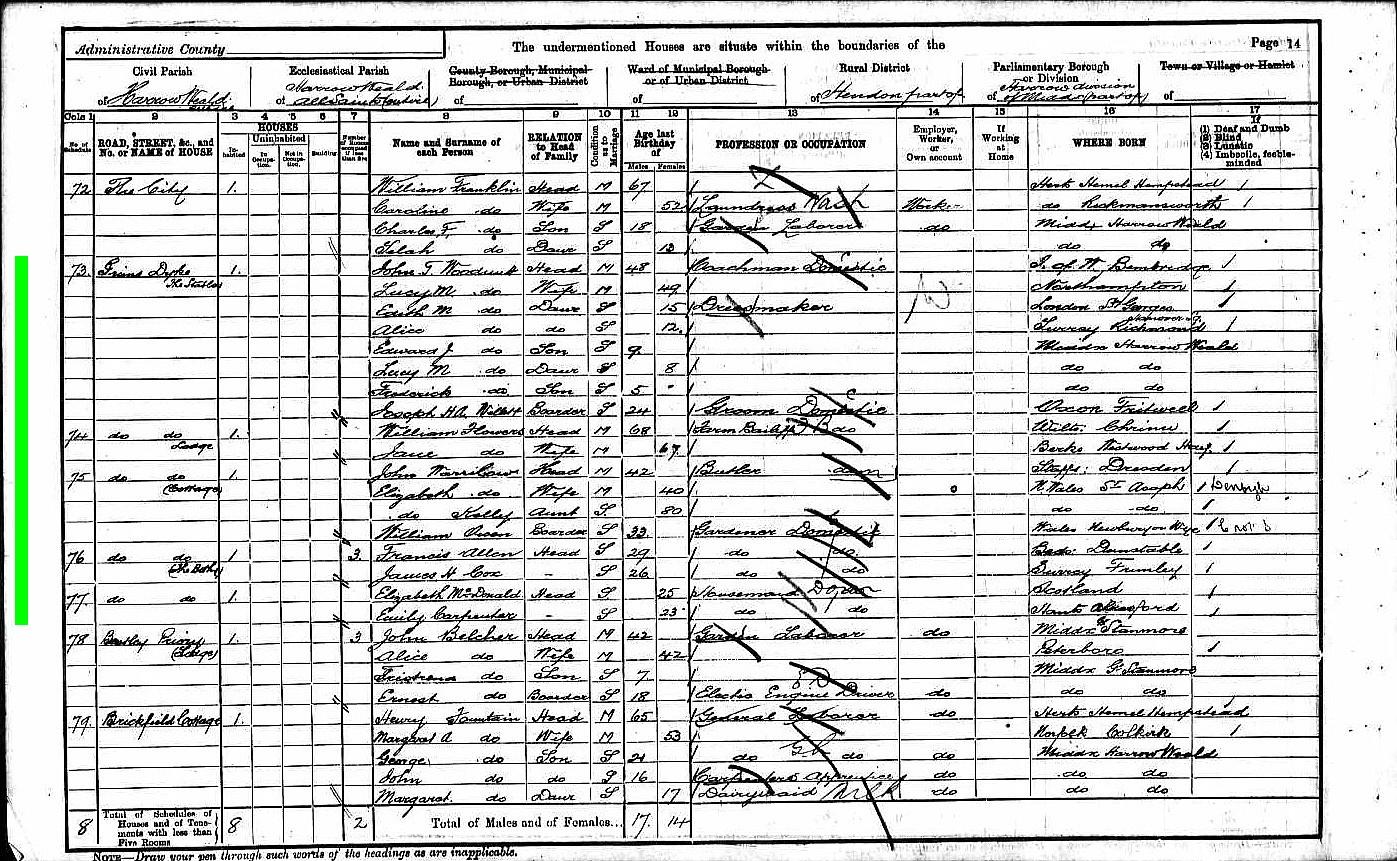 Administrative County
The undermentioned Houses are situate within the boundaries of the
Page 14
Civil Parish
of Harrow Weald
Ecclesiastical Parish
Harrow Weald
of All Saints
County Borough, Municipal Borough, or Urban District
of
Ward of Municipal Borough or of Urban District
of
Rural District
of Hendon part of
Parliamentary Borough or Division
Harrow division
of Middx (part of)
Town or Village or Hamlet
of
Cols 1 2 3 4 5 6 7 8 9 10 11 12 13 14 15 16 17
No. of Schedule
ROAD, STREET, &c., and No. or NAME of HOUSE
HOUSES
Inhabited
Uninhabited
In Occupation.
Not in Occupation.
Building
Number of Rooms occupied if less than five
Name and Surname of each Person
RELATION to Head of Family
Condition as to Marriage
Age last Birthday of
Males Females
PROFESSION OR OCCUPATION
Employer, Worker, or Own account
If Working at Home
WHERE BORN
If (1) Deaf and Dumb (2) Blind (3) Lunatic (4) Imbecile, feeble-minded
72 The City 1. William Franklin Head M 67 Herts Hemel Hempstead
Caroline do Wife M 52 Laundress Wash Worker do Rickmansworth
Charles F. do Son S 18 Garden Laborer do Middx Harrow Weald
do Daur S 13 do do
73 Grims Dyke 1. John T. Head M 48 Coachman Domestic I. of W. Bembridge
The Stables Lucy M. do Wife M 49 Northampton
Edith M do Daur S 15 Dressmaker London St Georges
Hanover Sq.
Alice do do S 12. Surrey Richmond
Edward J. do Son S 9. Middx Harrow Weald
Lucy M do Daur S 8 do do
Frederick do Son S 5 do do
Joseph H.A. Willett Boarder S 24 Groom Domestic Oxon Fritwell
74 do do 1. William Flowers Head M 68 Farm Bailiff do Wilts.
Lodge Jane do Wife M 67 Berks
75 do do 1 John Warrilow Head M 42 Butler dom Staffs: Dresden
(Cottage) Elizabeth do Wife M 40 N. Wales St Asaph Denbigh
do Kelly Aunt S. 80 do do
William Owen Boarder S 33 Gardener Domestic Wales
76 do do 1 3. Francis Allen Head S 29 do do Beds: Dunstable
(The Bothy) James H Cox - S 26 do do Surrey Frimley
77. do do 1. Elizabeth McDonald Head S 25 Housemaid Dom Scotland
Emily Carpenter - S 23 do do Hants Alresford
78 Bentley Priory 1. 3 John Belcher Head M 42 Garden Laborer do Middx Gt Stanmore
(Lodge) Alice do Wife M 42 Peterboro
do Son S 7 Middx Gt Stanmore
Ernest do Boarder S 18 Electric Engine Driver do do do
79. Brickfield Cottage 1. Henry Fountain Head M 65 General Laborer do Herts Hemel Hempstead
Margaret A do Wife M 53 Norfolk Colkirk
George do Son S 21 do do do Middx Harrow Weald
John do do S 16 Carpenters Apprentice do do do
Margaret. do Daur S 17 Dairymaid Milk do do do
8 Total of Schedules of Houses and of Tenements with less than Five Rooms 8 2 Total of Males and of Females... 17. 14
NOTE—Draw your pen through such words of the headings as are inapplicable.